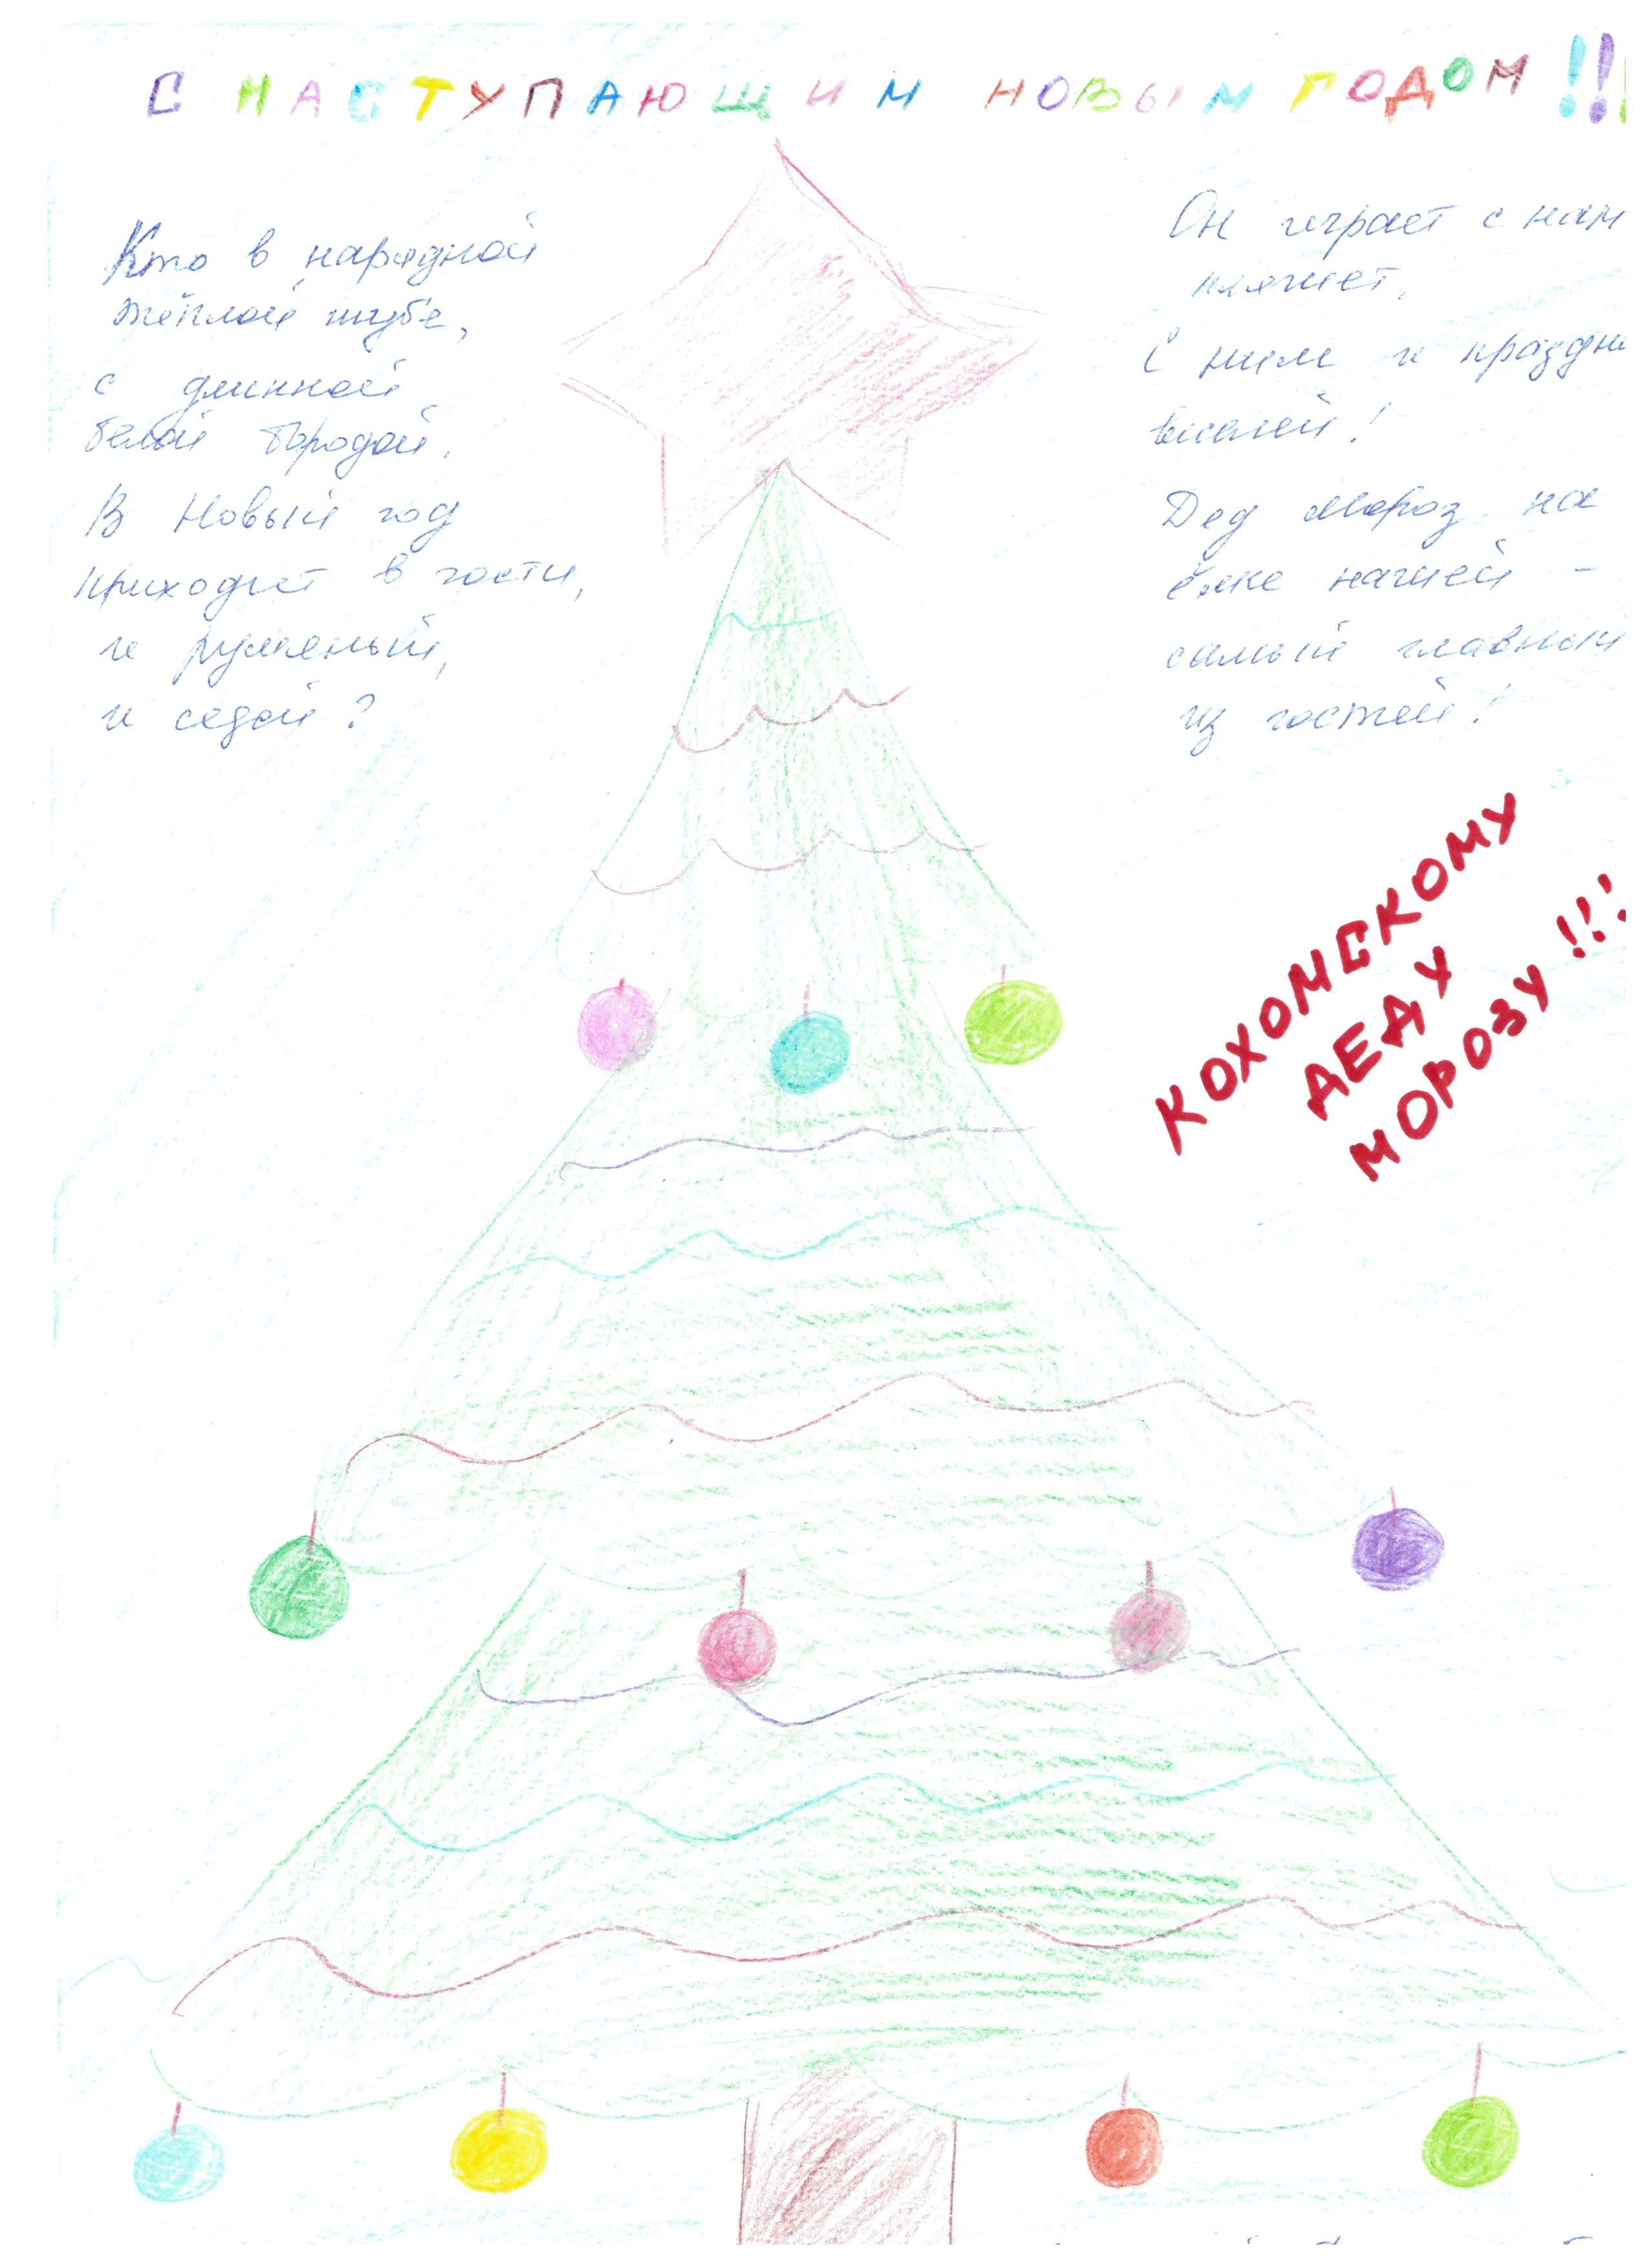 С НАСТУПАЮЩИМ НОВЫМ ГОДОМ !!!
Кто в нарядной
тёплой шубе,
с длинной
белой бородой.
В Новый год
приходит в гости,
и румяный,
и седой?
Он играет с нам
пляшет,
С ним и праздни
веселей!
Дед Мороз на
ёлке нашей -
самый главный
из гостей!
КОХОМСКОМУ
ДЕДУ
МОРОЗУ !!!